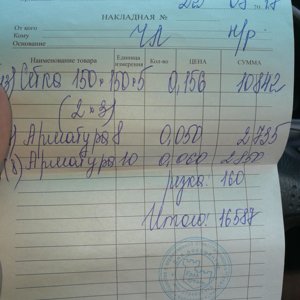 НАКЛАДНАЯ №
От кого
Кому
Основание
Наименование товара Единица измерения Кол-во ЦЕНА СУММА
Сетка 150×150×5 0,156 10842
(2×3)
Арматура 8 0,050 2735
Арматура 10 0,060
резка. 160
Итого: 16587